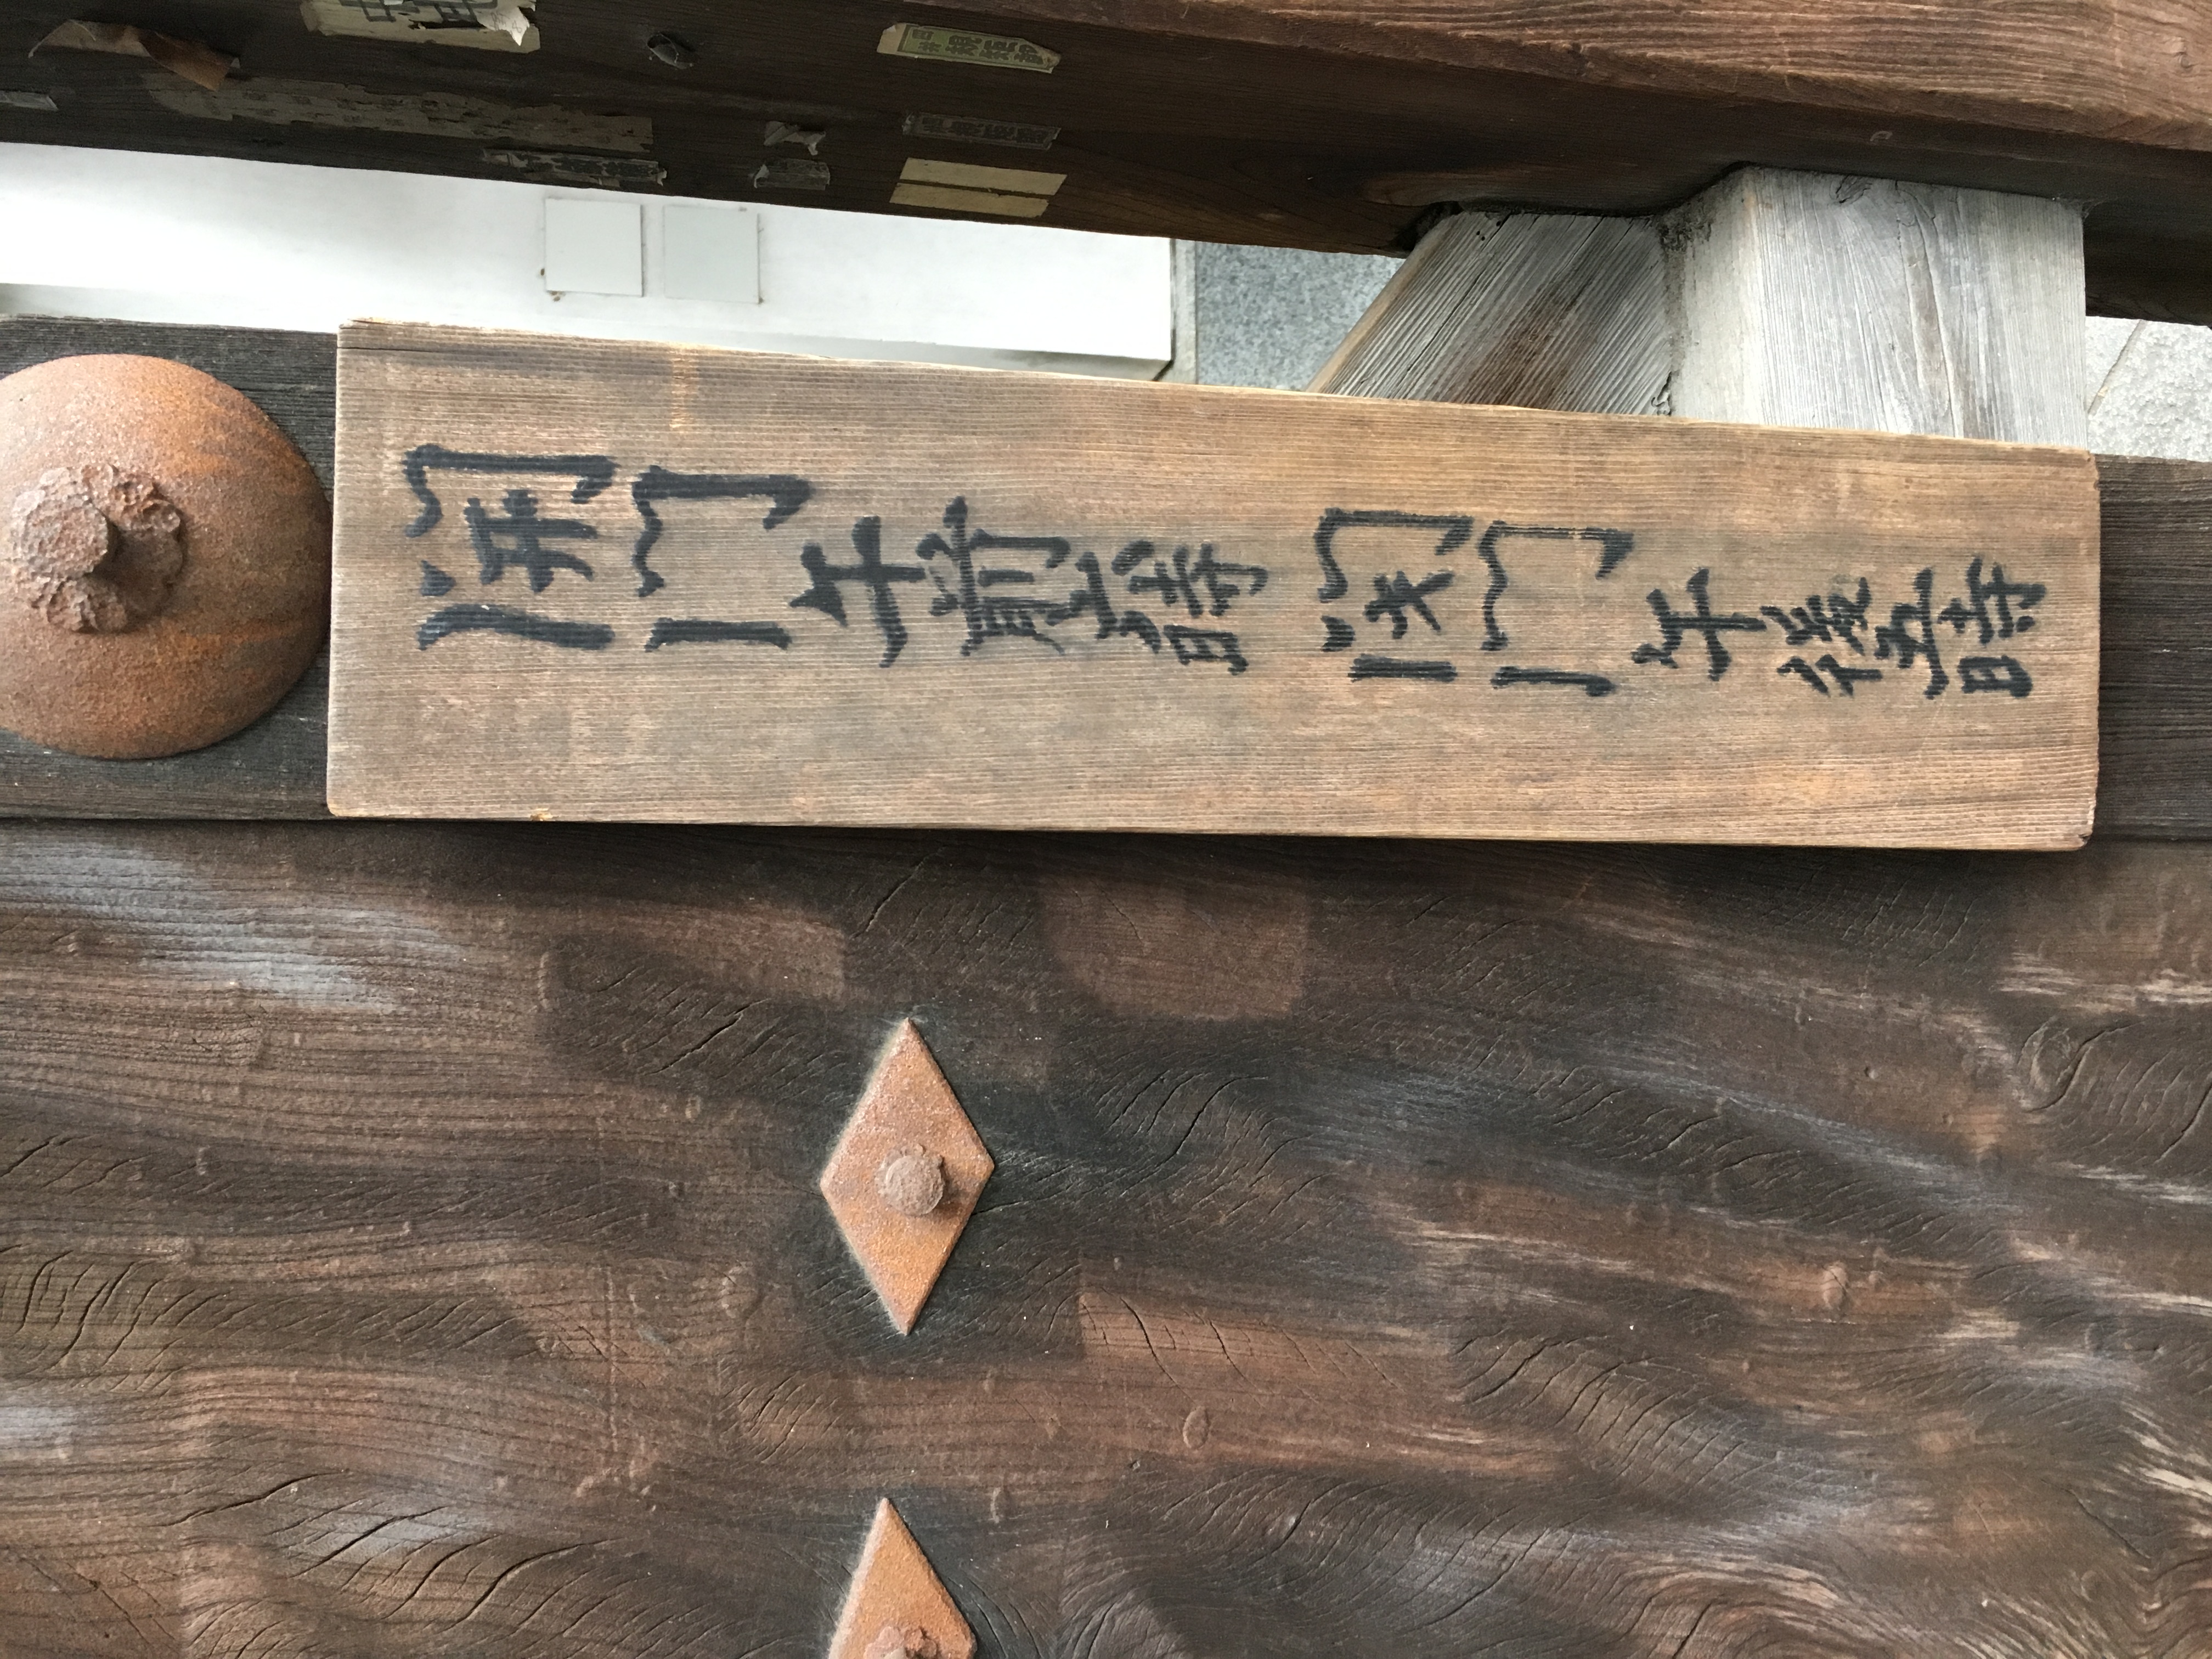 開門午前六時 閉門午後五時